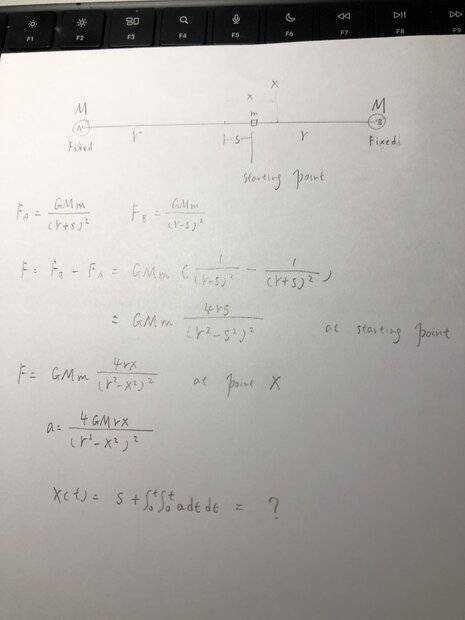 F1 F2 F3 F4 F5 F6 F7 F8 F9
X
x
M m M
A B
Fixed r s r Fixed
starting point
F_A = GMm/(r+s)² F_B = GMm/(r-s)²
F = F_B - F_A = GMm (1/(r-s)² - 1/(r+s)²)
= GMm 4rs/(r²-s²)² at starting point
F = GMm 4rx/(r²-x²)² at point X
a = 4GMrx/(r²-x²)²
x(t) = s + ∫₀ᵗ∫₀ᵗ a dt dt = ?